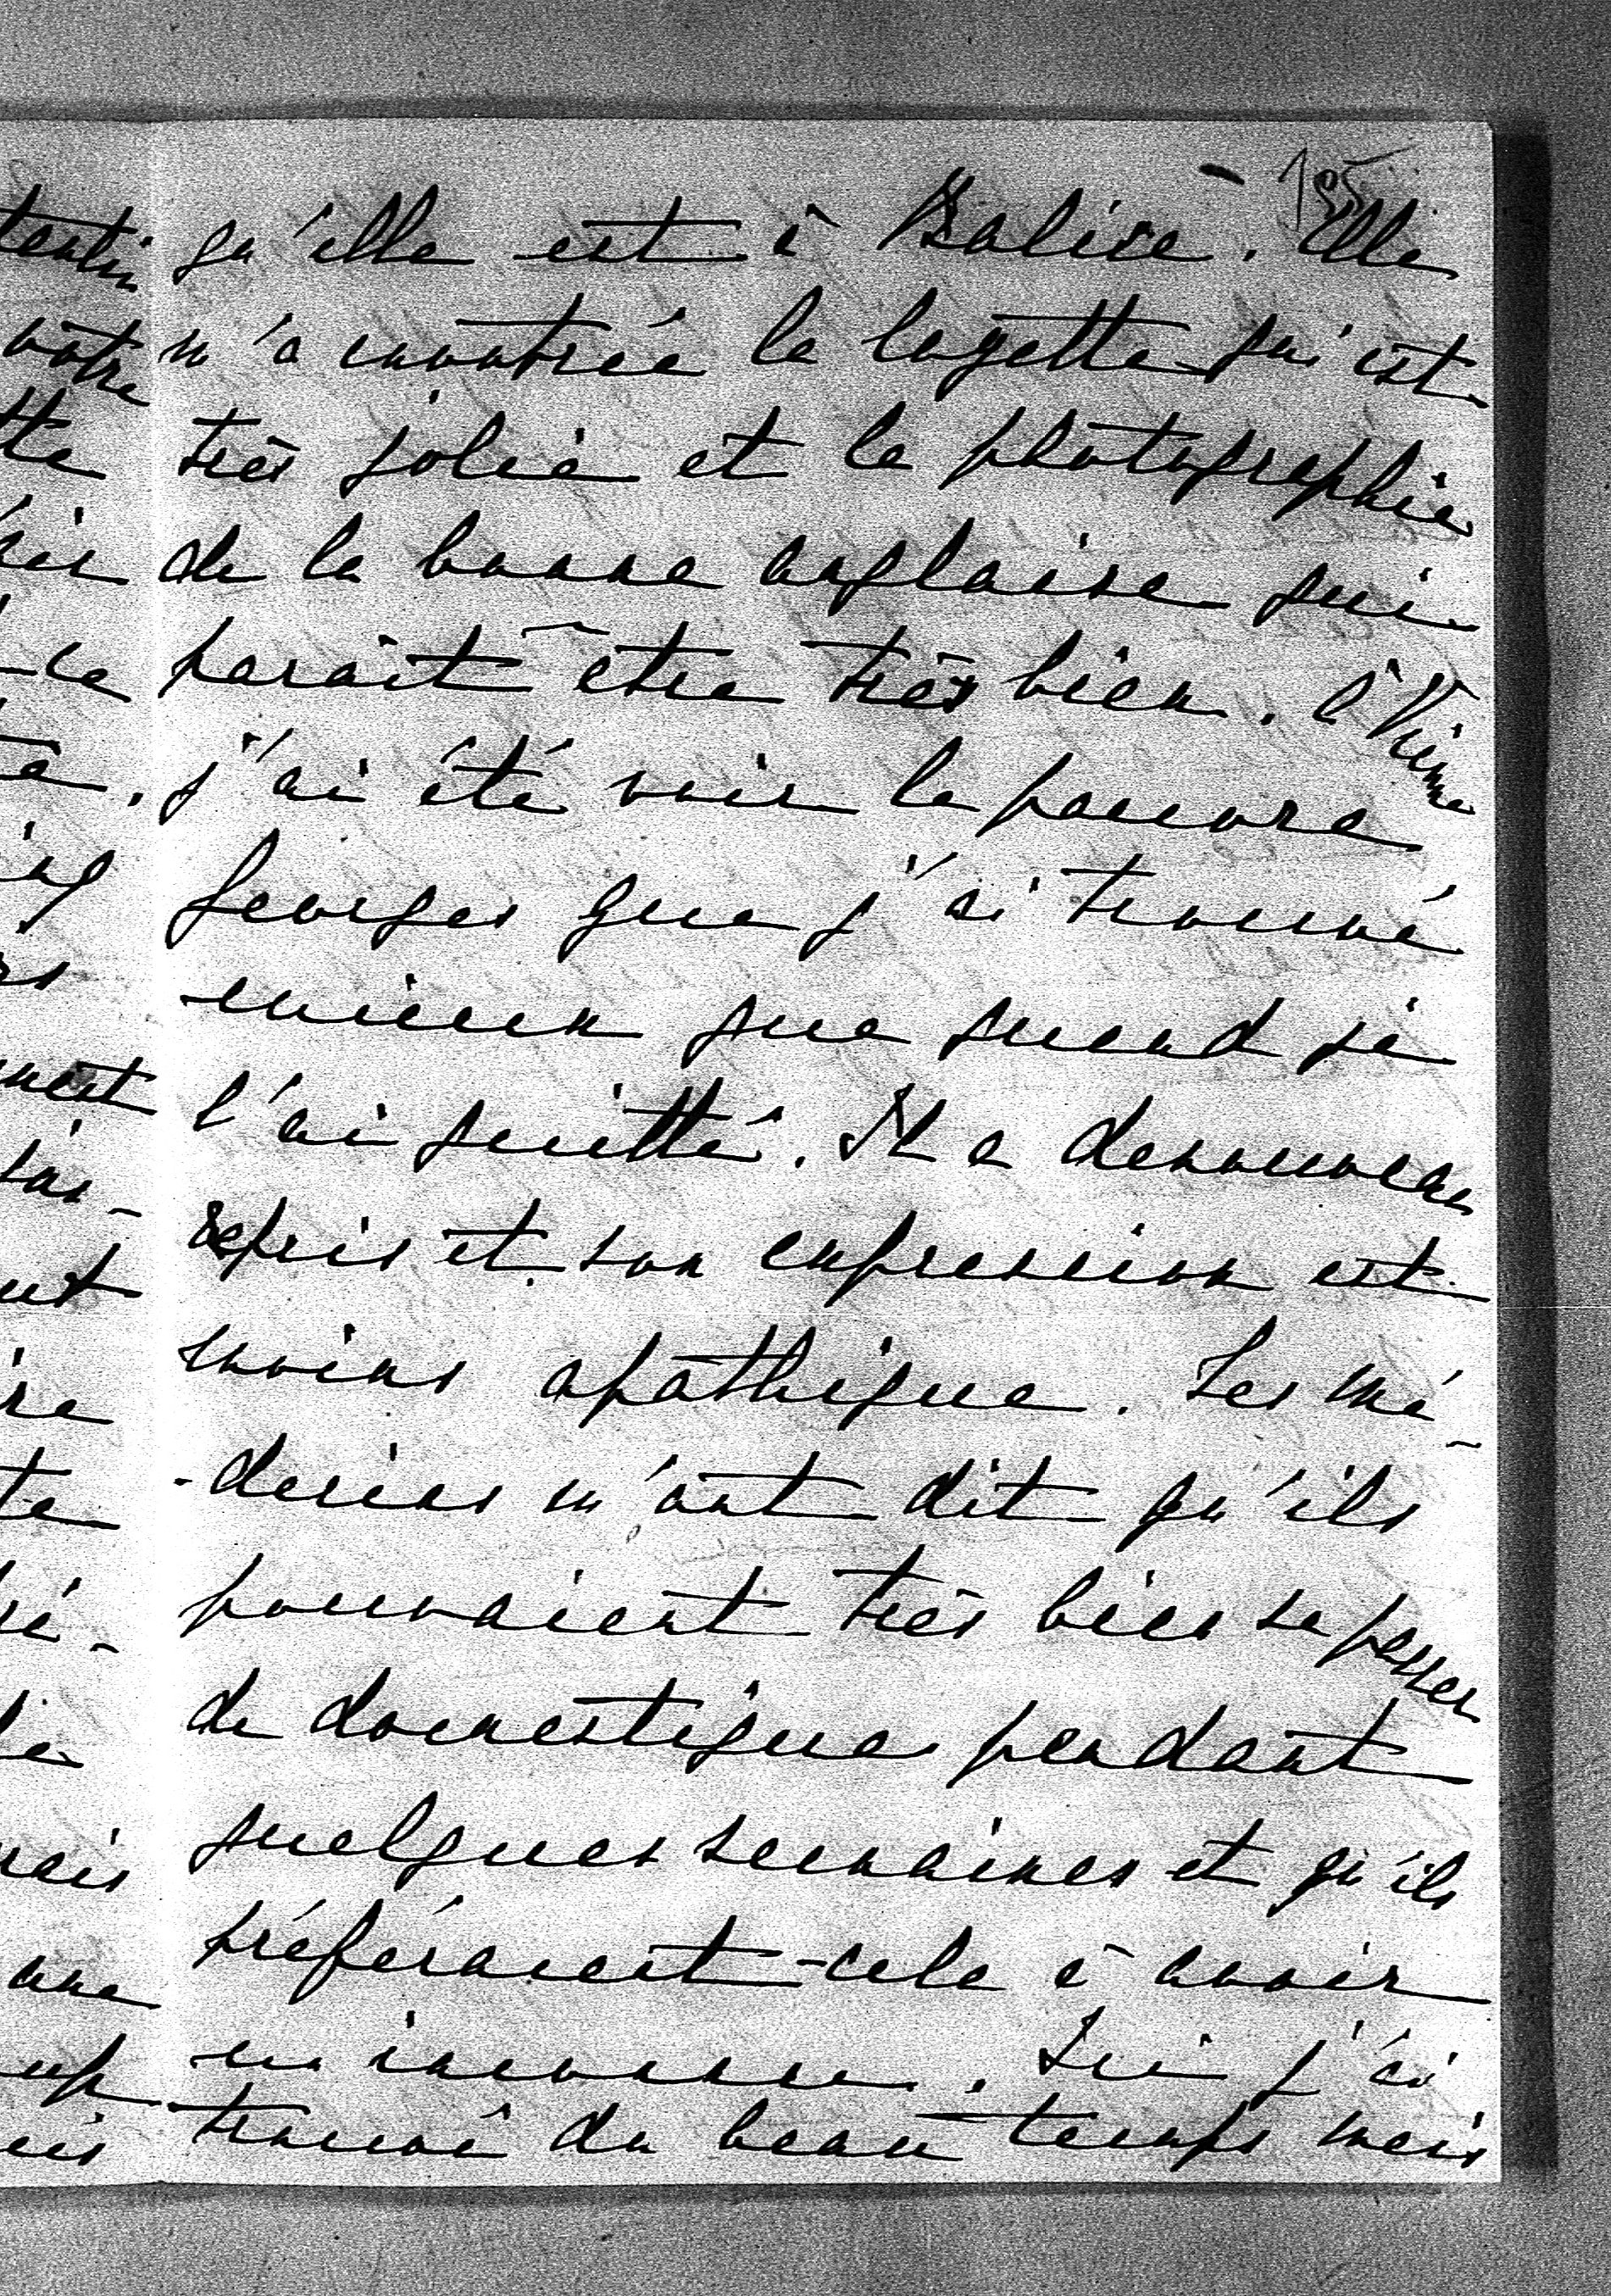 185
qu'elle est à Balice. Elle
m'a montrée la layette qui est
très jolie et la photographie
de la bonne anglaise qui
parait être très bien. à Vienne
j'ai été voir le pauvre
Georges que j'ai trouvé
mieux que quand je
l'ai quitté. Il a denouveau
repris et son expression est
moins apathique. Les mé-
-decins m'ont dit qu'ils
pouvaient très bien se passer
de domestique pendant
quelques semaines et qu'ils
préféraient cela à avoir
un inconnu. Ici j'ai
trouvé du beau temps mais
votre